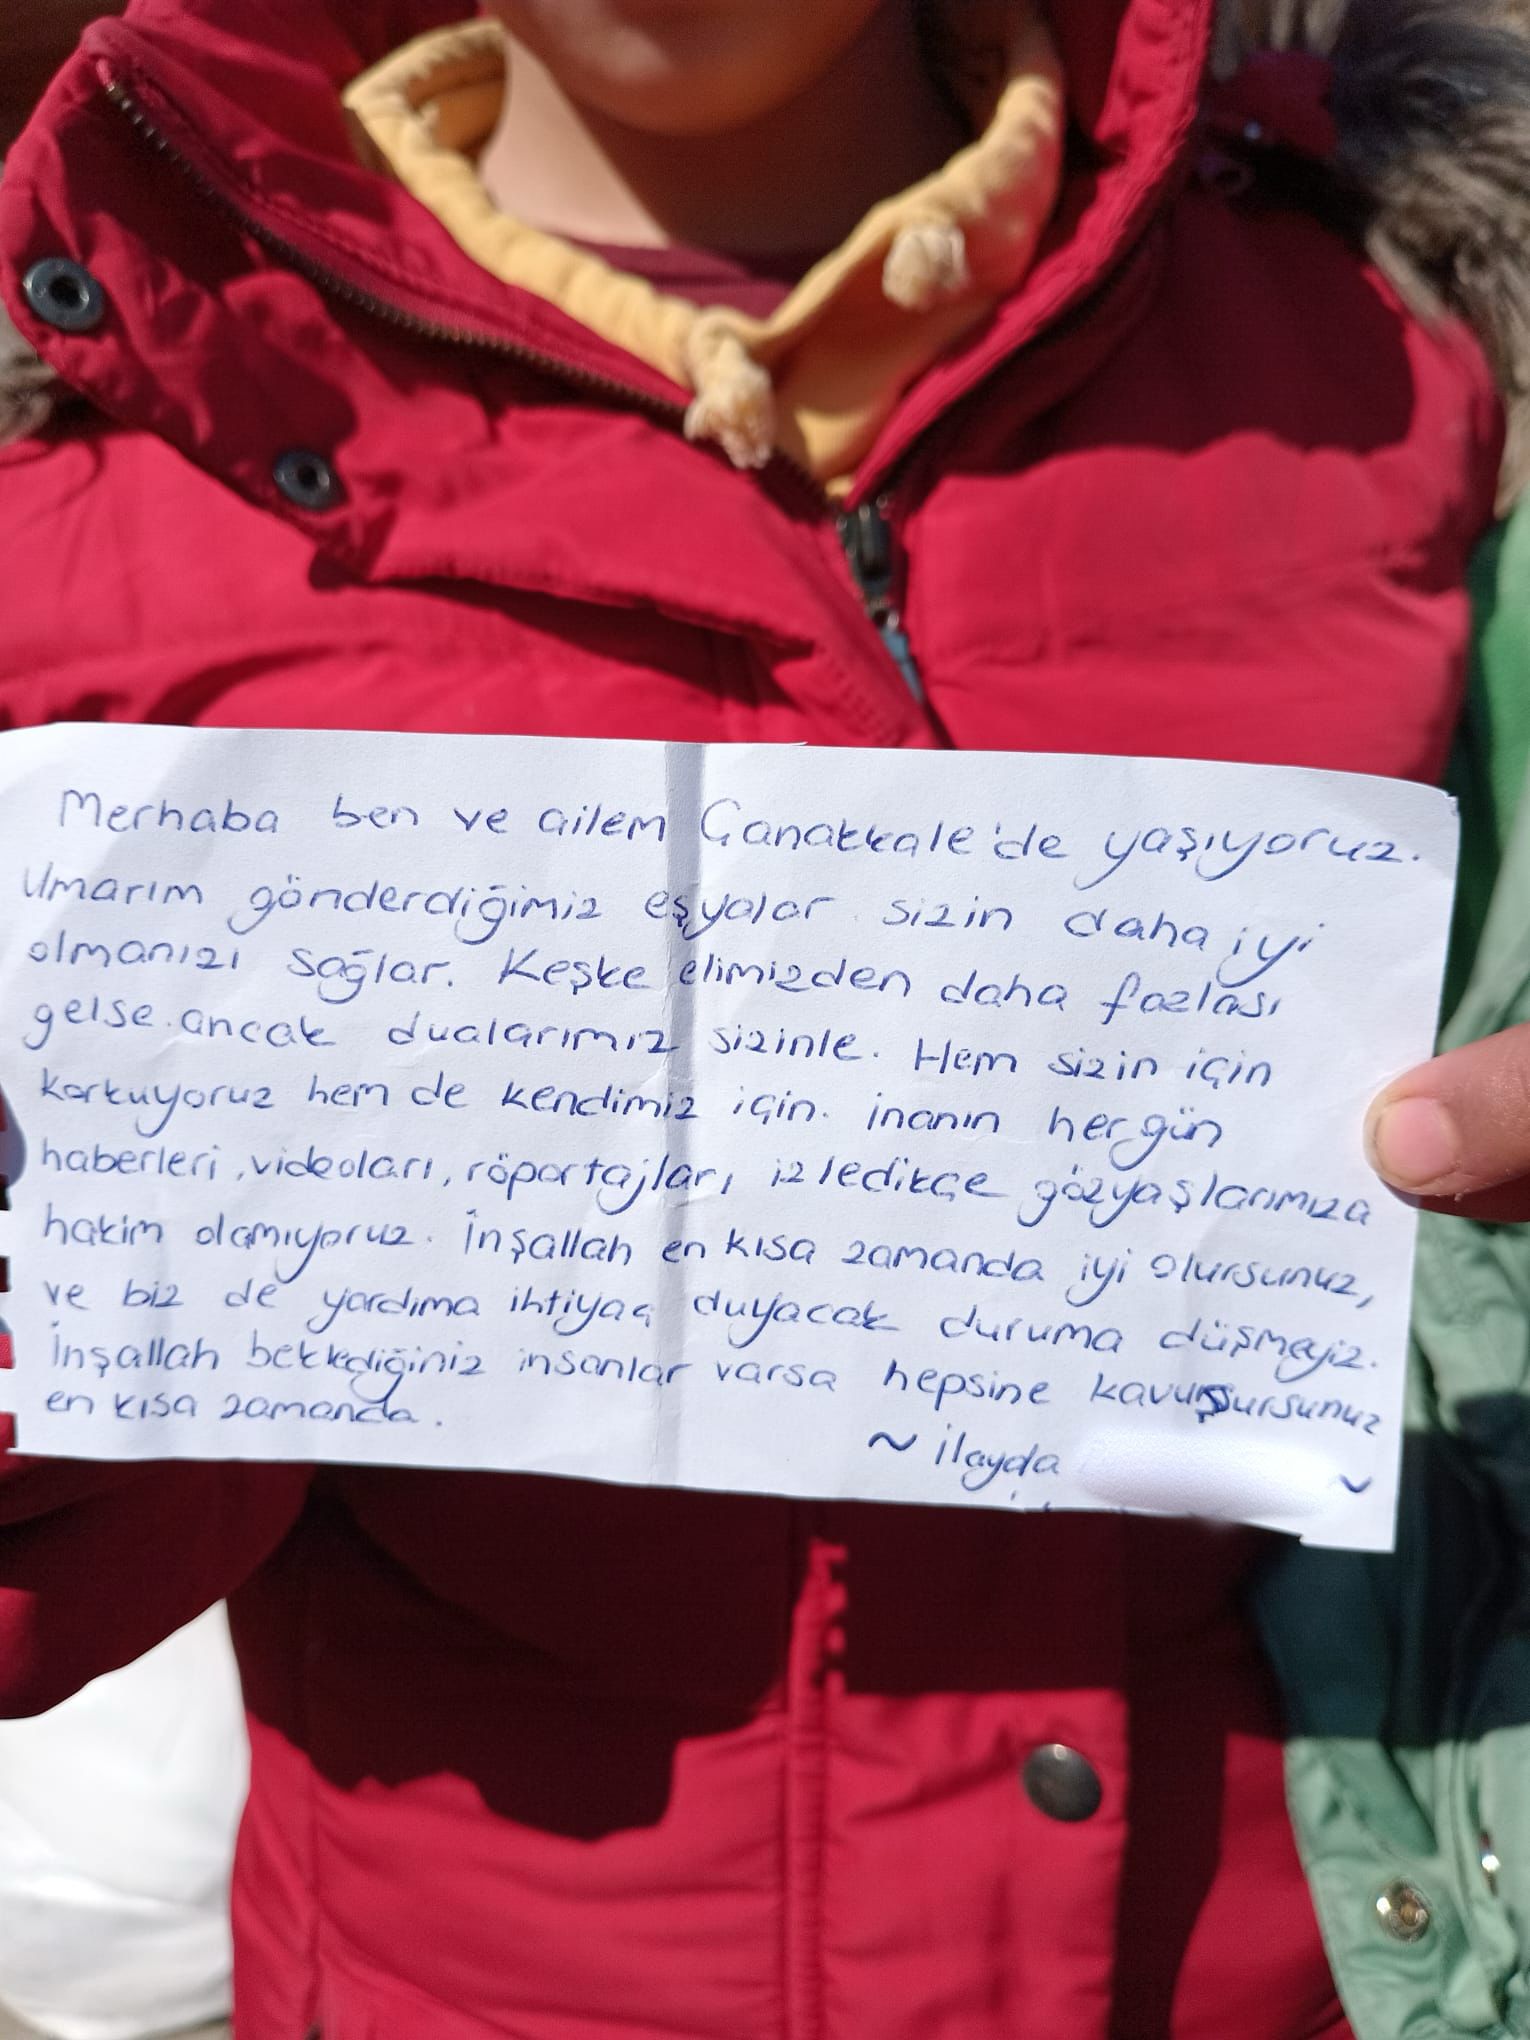 Merhaba ben ve ailem Çanakkale'de yaşıyoruz.
Umarım gönderdiğimiz eşyalar sizin daha iyi
olmanızı sağlar. Keşke elimizden daha fazlası
gelse ancak dualarımız sizinle. Hem sizin için
korkuyoruz hem de kendimiz için. inanın her gün
haberleri, videoları, röportajları, izledikçe gözyaşlarımıza
hakim olamıyoruz. İnşallah en kısa zamanda iyi olursunuz,
ve biz de yardıma ihtiyaç duyacak duruma düşmeyiz.
İnşallah beklediğiniz insanlar varsa hepsine kavuşursunuz
en kısa zamanda.
~ İlayda ~